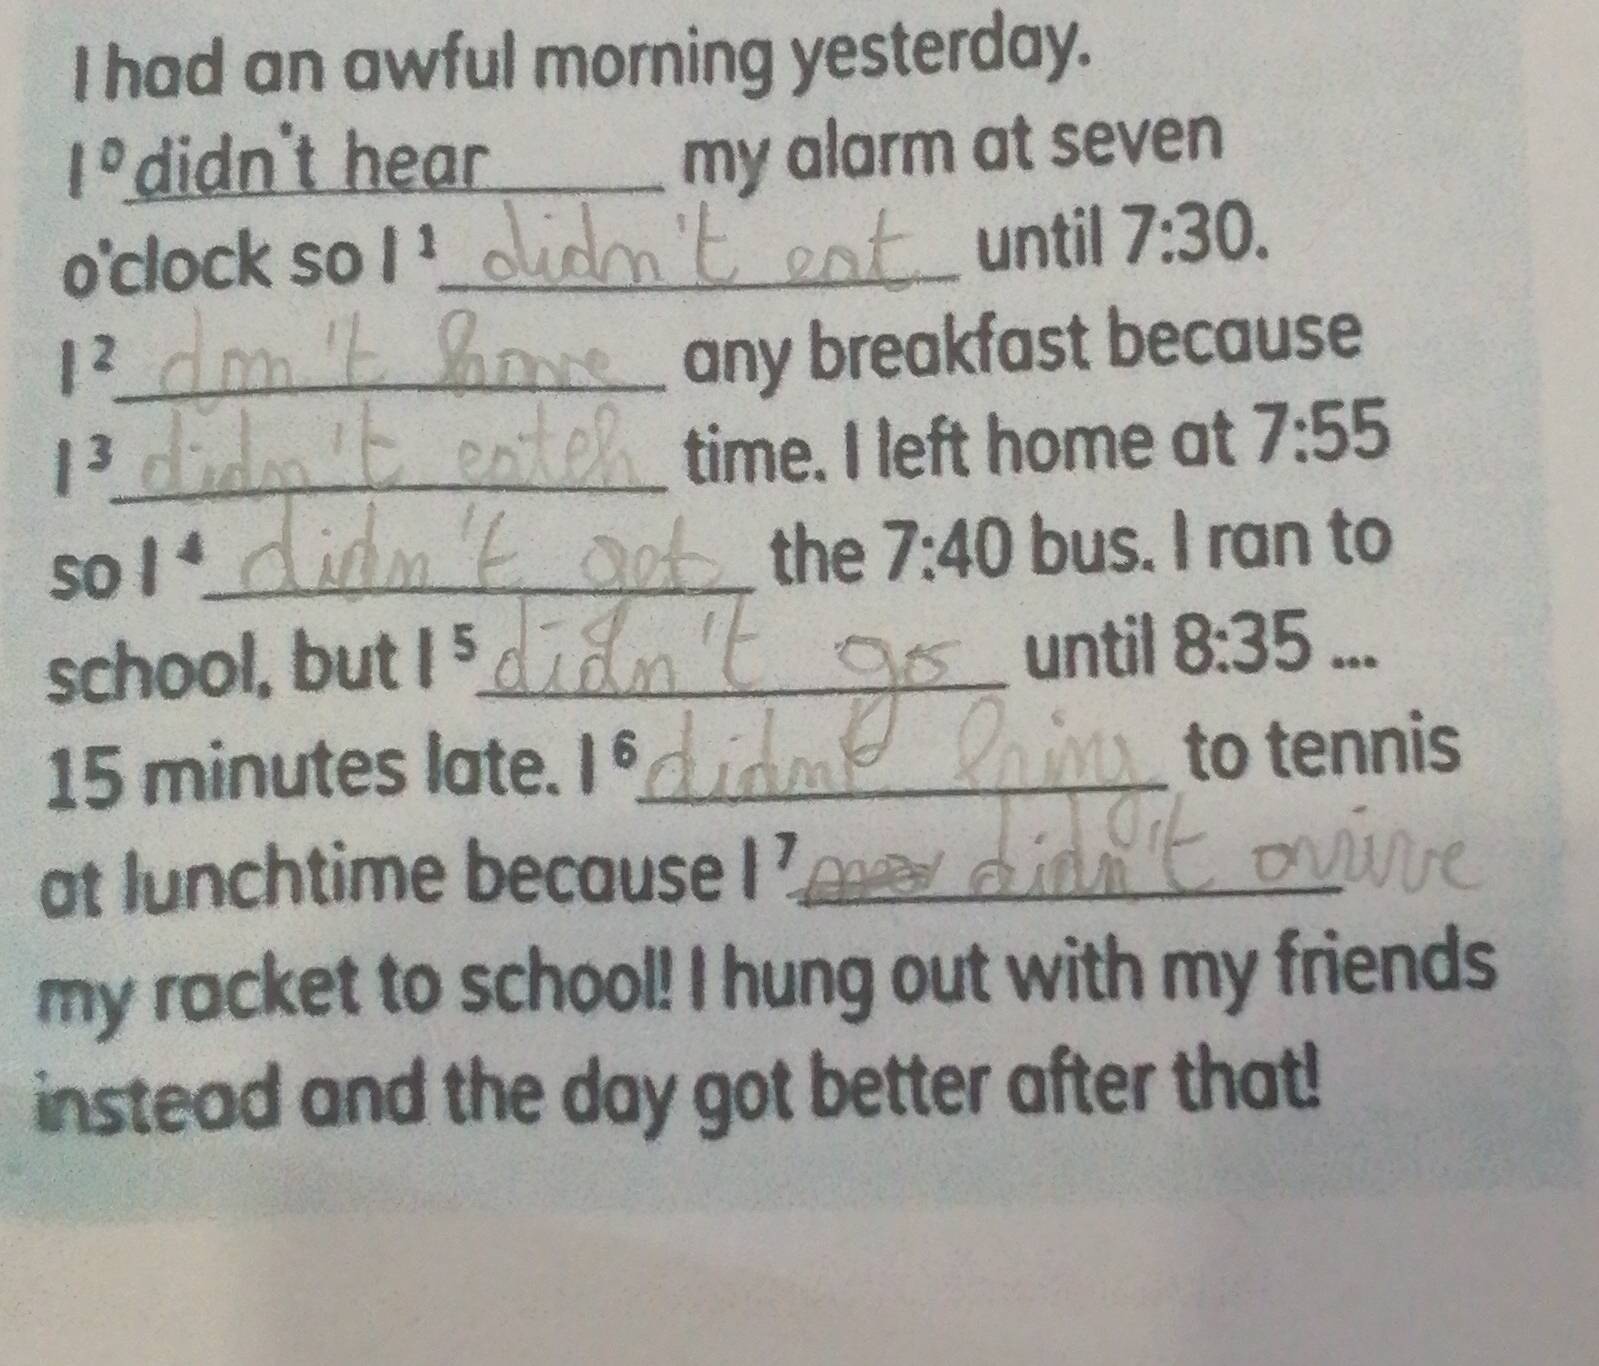 I had an awful morning yesterday.
I 0 didn't hear my alarm at seven
o'clock so I 1 didn't eat until 7:30.
I 2 don't have any breakfast because
I 3 didn't catch time. I left home at 7:55
so I 4 didn't get the 7:40 bus. I ran to
school, but I 5 didn't go until 8:35 ...
15 minutes late. I 6 didn't bring to tennis
at lunchtime because I 7 didn't arrive
my racket to school! I hung out with my friends
instead and the day got better after that!